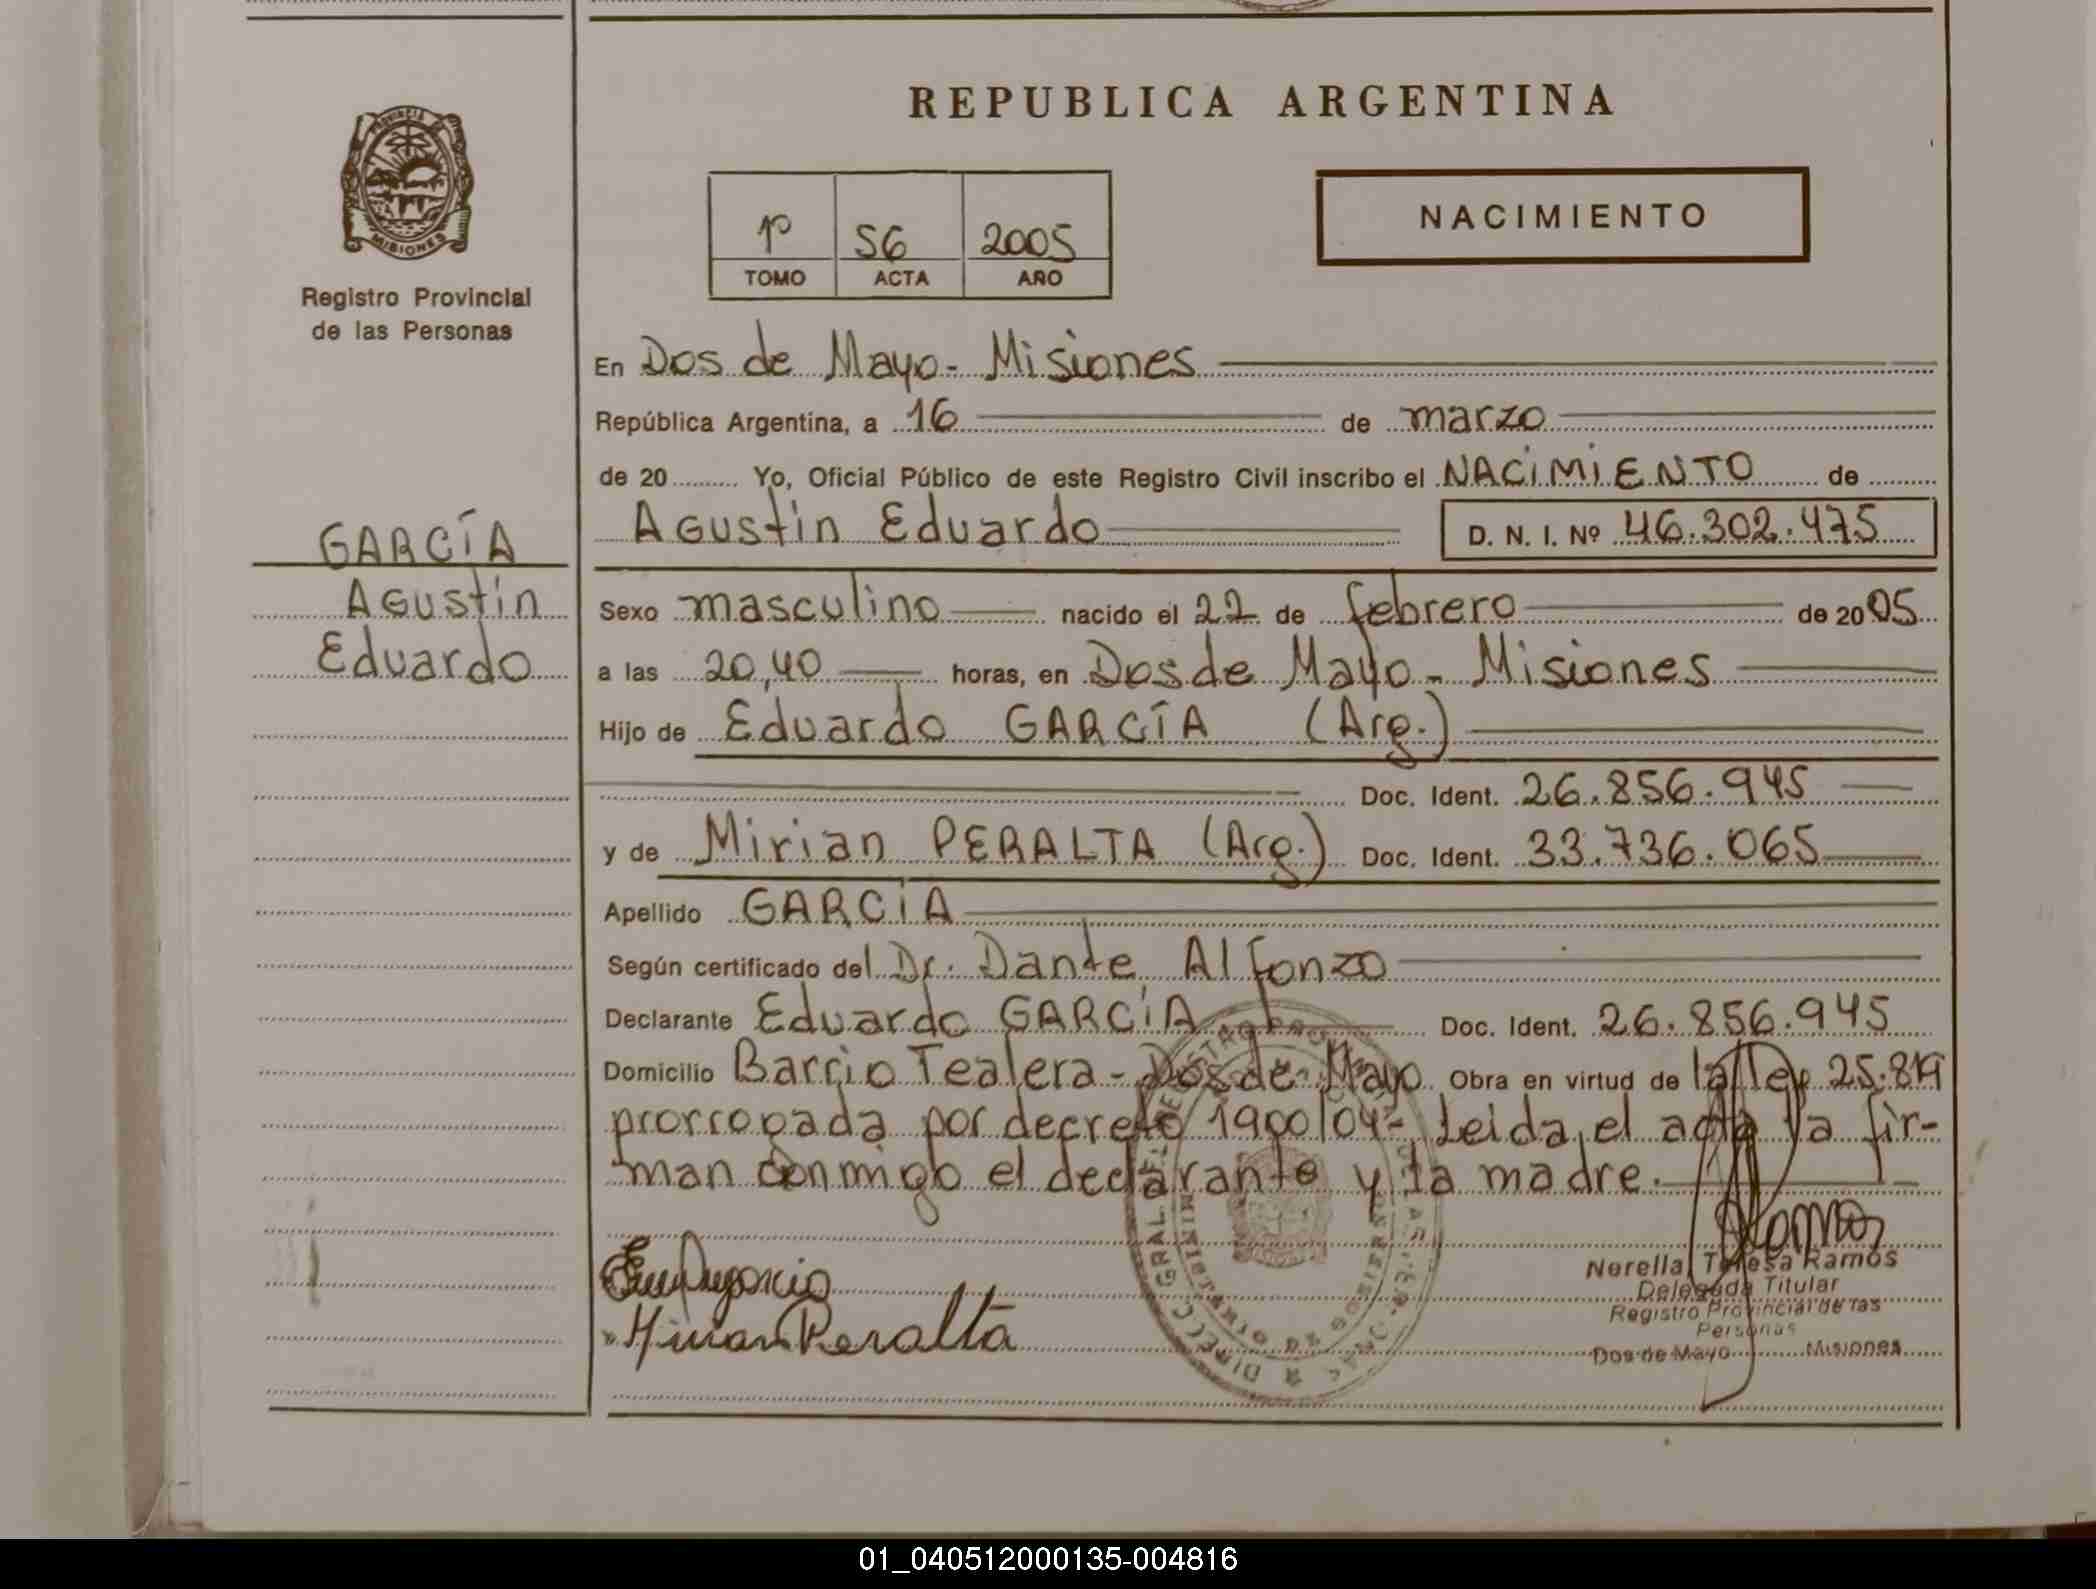 PROVINCIA DE
MISIONES
Registro Provincial
de las Personas
GARCÍA
Agustin
Eduardo
REPUBLICA ARGENTINA
1º 56 2005
TOMO ACTA AÑO
NACIMIENTO
En Dos de Mayo - Misiones
República Argentina, a 16 de marzo
de 20 Yo, Oficial Público de este Registro Civil inscribo el NACIMIENTO de
Agustin Eduardo D. N. I. Nº 46.302.475
Sexo masculino nacido el 22 de febrero de 2005
a las 20,40 horas, en Dos de Mayo - Misiones
Hijo de Eduardo GARCÍA (Arg.)
Doc. Ident. 26.856.945
y de Mirian PERALTA (Arg.) Doc. Ident. 33.736.065
Apellido GARCÍA
Según certificado del Dr. Dante Alfonzo
Declarante Eduardo GARCÍA Doc. Ident. 26.856.945
Domicilio Barrio Tealera - Dos de Mayo Obra en virtud de la ley 25.819
prorrogada por decreto 1900/04-, Leida el acta la fir-
man conmigo el declarante y la madre.
Mirian Peralta
Ramos
Nerella Teresa Ramos
Delegada Titular
Registro Provincial de las
Personas
Dos de Mayo Misiones
01_040512000135-004816